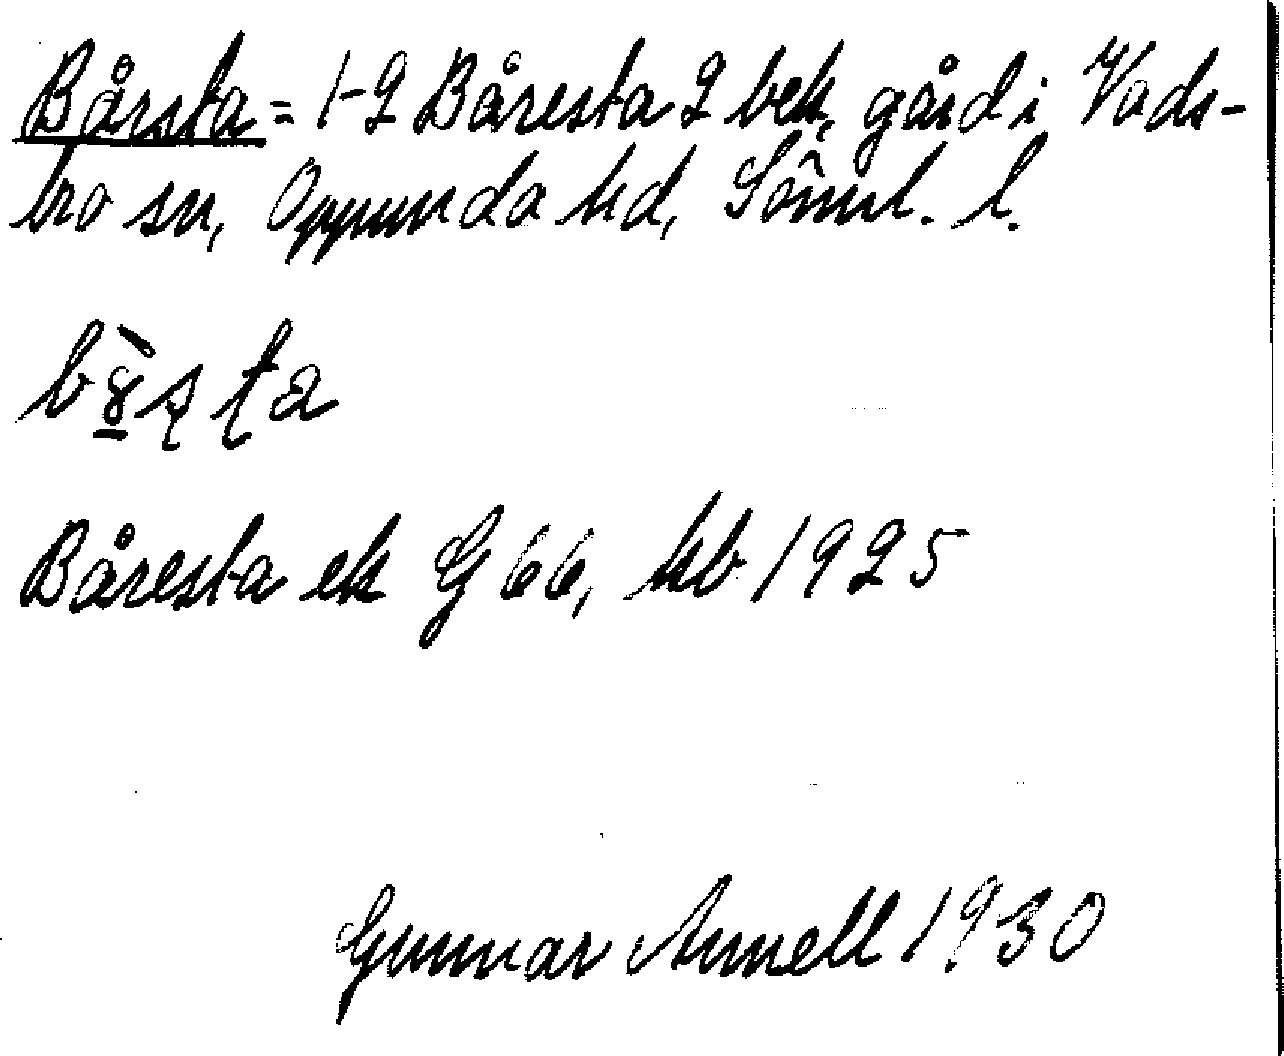 Bårsta = 1-2 Båresta 2 bek. gård i Vads-
bro sn, Oppunda hd, Sörml. l.
Båresta ek G 66, hb 1925
Gunnar Annell 1930